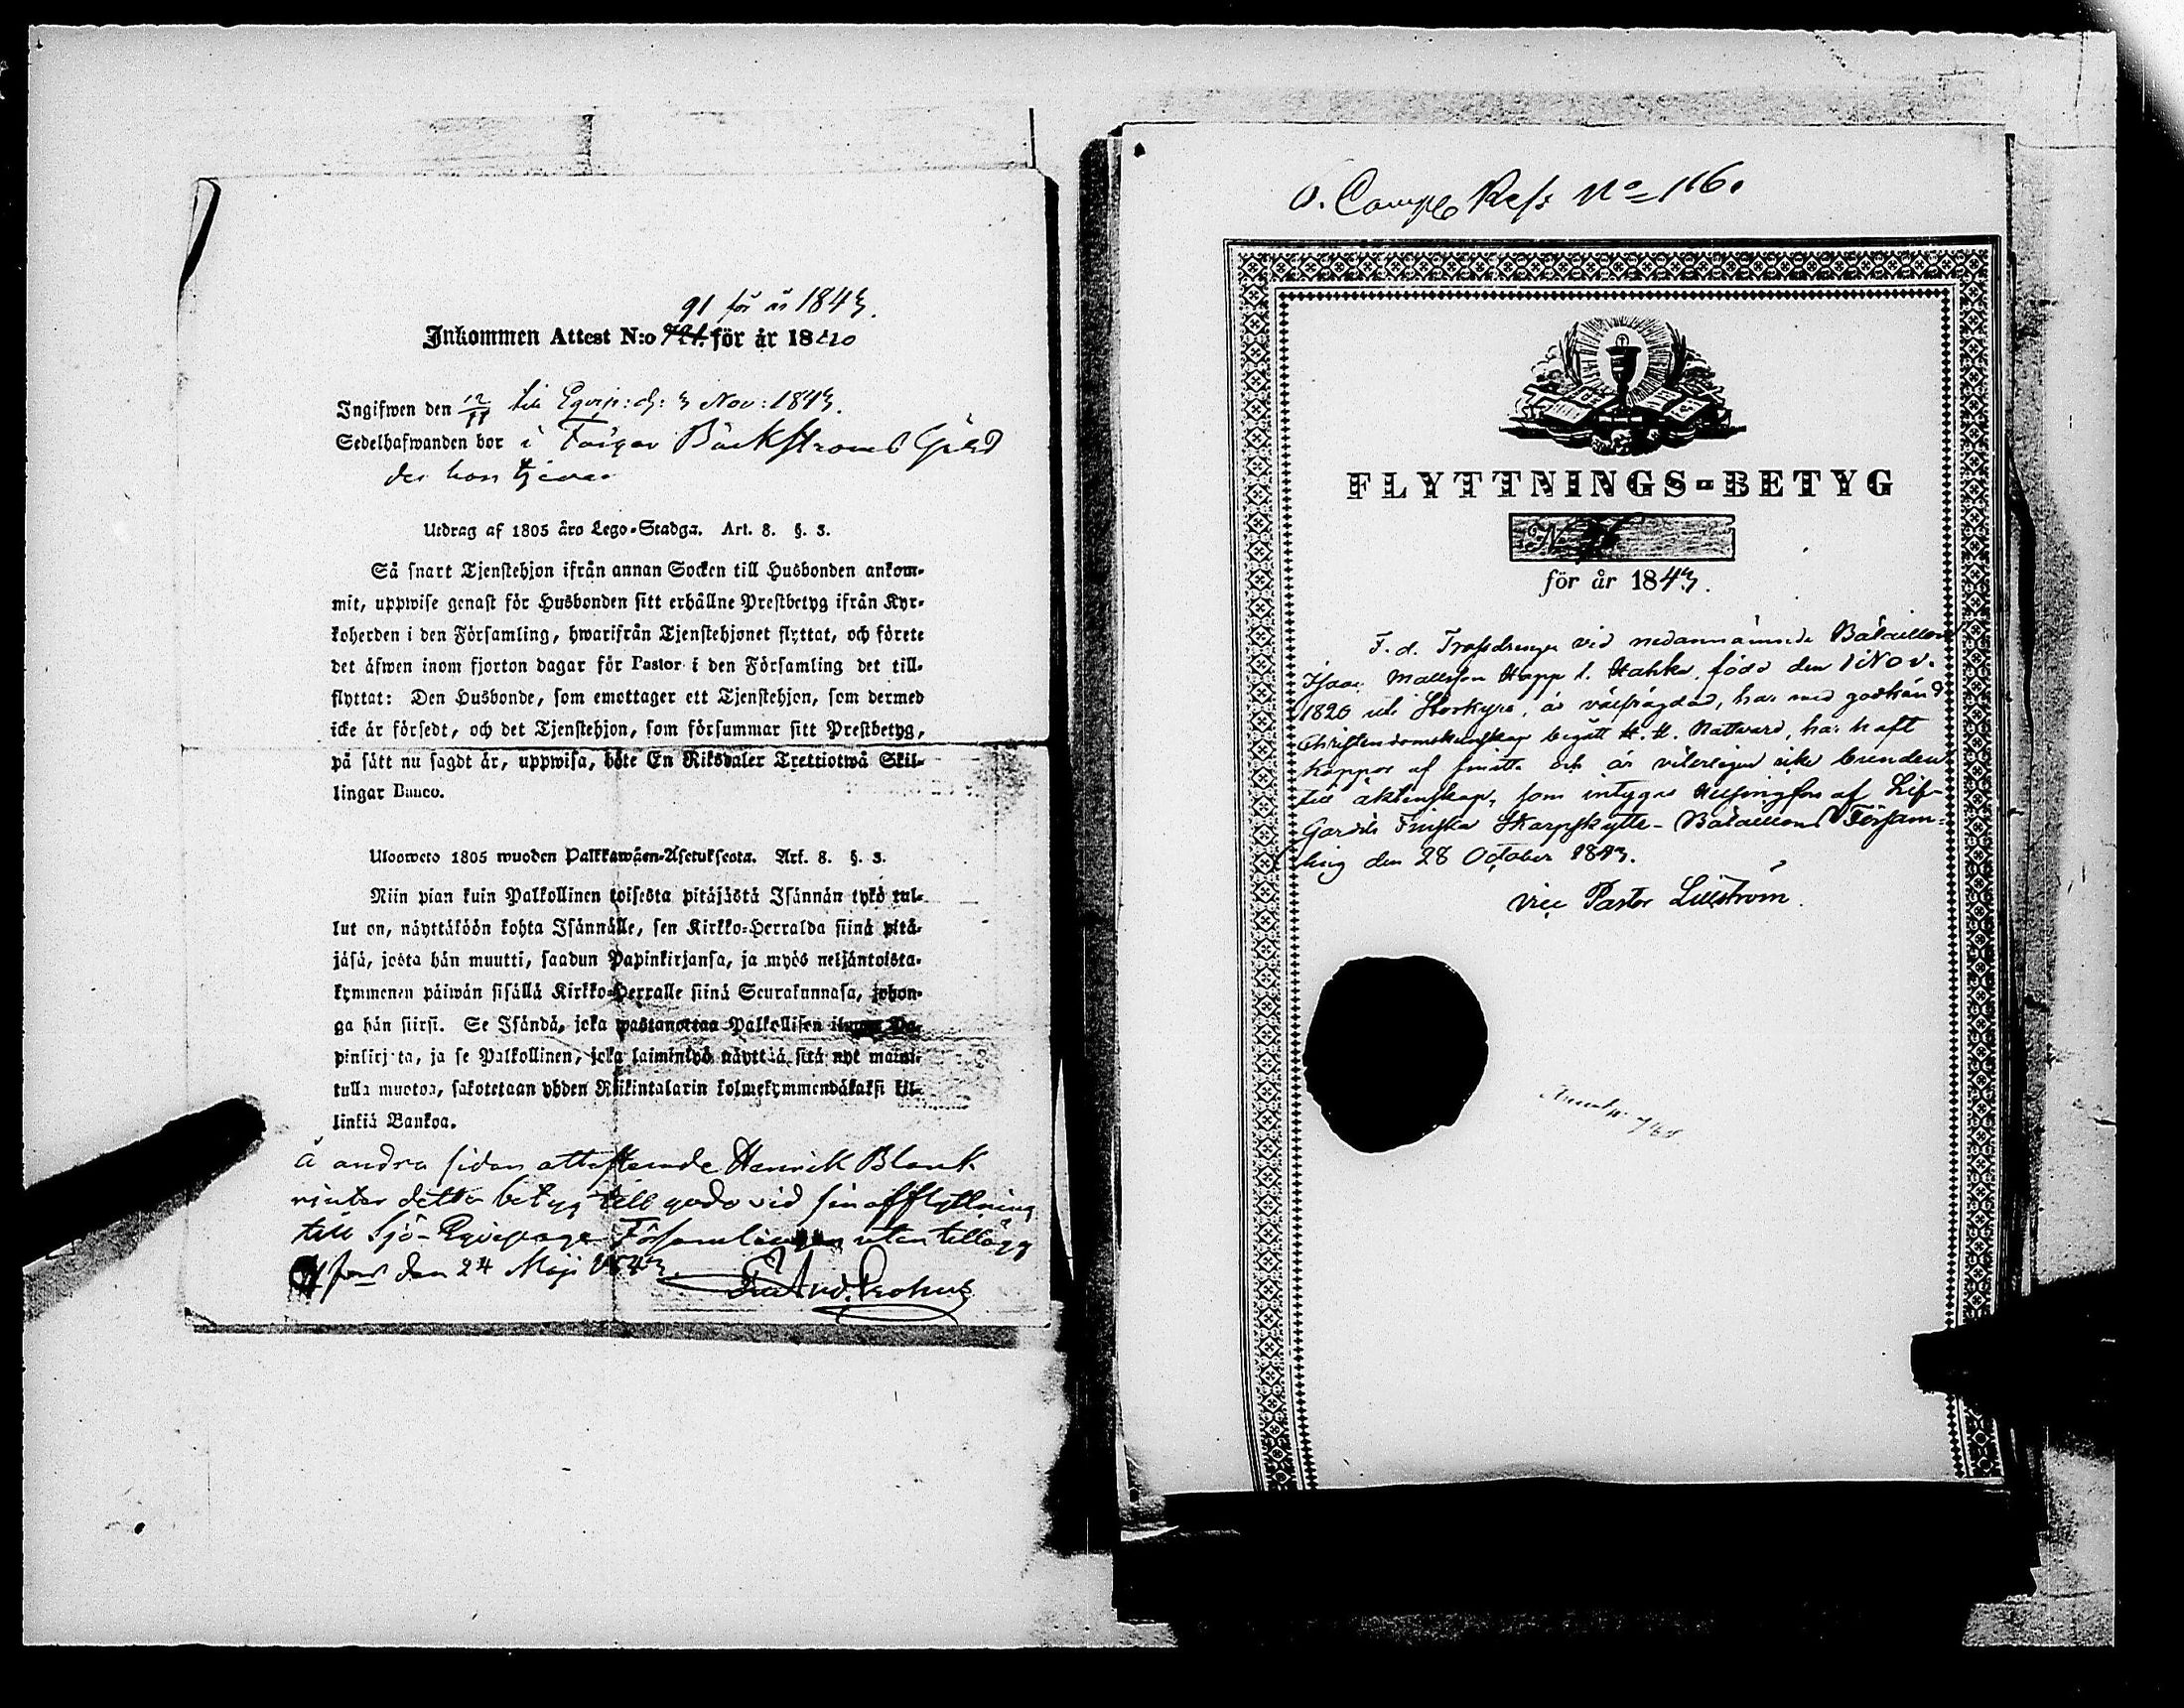 91 för år 1843.
Inkommen Attest N:o för år 1840
Ingifwen den 12/11 till Equip: d: 3 Nov: 1843.
Sedelhafwanden bor i Bäckströms Gård
der hon tjenar
Utdrag af 1805 åro Lego-Stadga. Art. 8. §. 3.
Så snart Tjenstehjon ifrån annan Socken till Husbonden ankom-
mit, uppwise genast för Husbonden sitt erhållne Prestbetyg ifrån Kyr-
koherden i den Församling, hwarifrån Tjenstehjonet flyttat, och förete
det äfwen inom fjorton dagar för Pastor i den Församling det till-
flyttat: Den Husbonde, som emottager ett Tjenstehjon, som dermed
icke är försedt, och det Tjenstehjon, som försummar sitt Prestbetyg,
på sätt nu sagdt är, uppwisa, böte En Riksdaler Trettiotwå Skil-
lingar Banco.
Uloosweto 1805 wuoden Palkkawäen-Asetuksesta. Art. 8. §. 3.
Niin pian kuin Palkollinen toisesta pitäjästä Isännän tykö tul-
lut on, näyttäköön kohta Isännälle, sen Kirkko-Herralda siinä pitä-
jäsä, josta hän muutti, saadun Papinkirjansa, ja myös neljäntoista-
kymmenen päiwän sisällä Kirkko-Herralle siinä Seurakunnasa, johon-
ga hän siirsi. Se Isändä, joka wastanottaa Palkollisen ilman Pa-
pinkirjata, ja se Palkollinen, joka laiminlyö näyttää sitä nyt maini-
tulla muotoa, sakotetaan yhden Riikintalarin kolmekymmendäkaksi kil-
linkiä Bankoa.
å andra sidan attesterade Henrik Blank
njuter detta betyg till godo vid sin afflyttning
till Sjö-Equipage Församlingen utan tillägg
H:fors den 24 Maji 1843.
O. Comp. Res: No 116.
FLYTTNINGS-BETYG
N
för år 1843.
F. d. Trossdrengen vid nedannämnde Bataillon
Isaac Mattsson Happ l. Hahka, född den 1 Nov.
1820 uti Storkyro, är välfrägdad, har med godkänd
Christendomskunskap begått H. H. Nattvard, har haft
koppor af smitta och är veterligen icke bunden
till äktenskap, som intygas Helsingfors af Lif-
Gardets Finska Skarpskytte-Bataillons Försam-
ling den 28 October 1843.
vice Pastor Lillström.